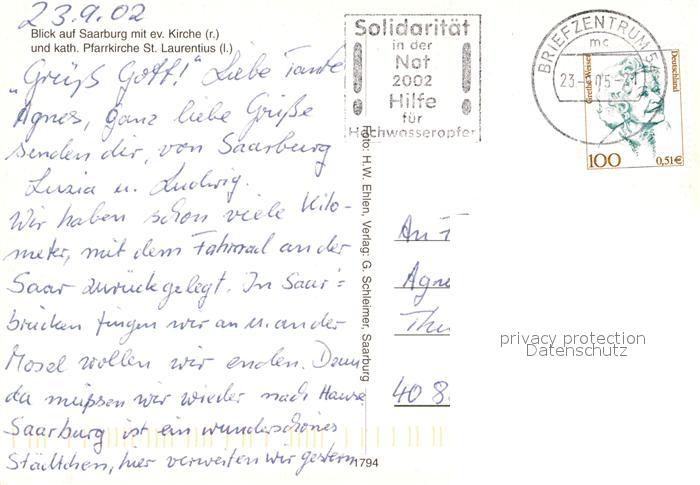 23.9.02
Blick auf Saarburg mit ev. Kirche (r.)
und kath. Pfarrkirche St. Laurentius (l.)
„Grüß Gott!" Liebe Tante
Agnes, ganz liebe Grüße
senden dir, von Saarburg
Luzia u. Ludwig.
Wir haben schon viele Kilo-
meter, mit dem Fahrrad an der
Saar zurückgelegt. In Saar=
brücken fingen wir an u. an der
Mosel wollen wir enden. Dann
da müssen wir wieder nach Hause
Saarburg ist ein wunderschönes
Städtchen, hier verweilten wir gestern
Solidarität
in der
Not
2002
Hilfe
für
Hochwasseropfer
BRIEFZENTRUM 54
mc
23.-9.
Grethe Weiser
Deutschland
100
0,51€
Foto: H.W. Ehlen, Verlag: G. Schleimer, Saarburg
1794
An
Agne
40 8
privacy protection
Datenschutz